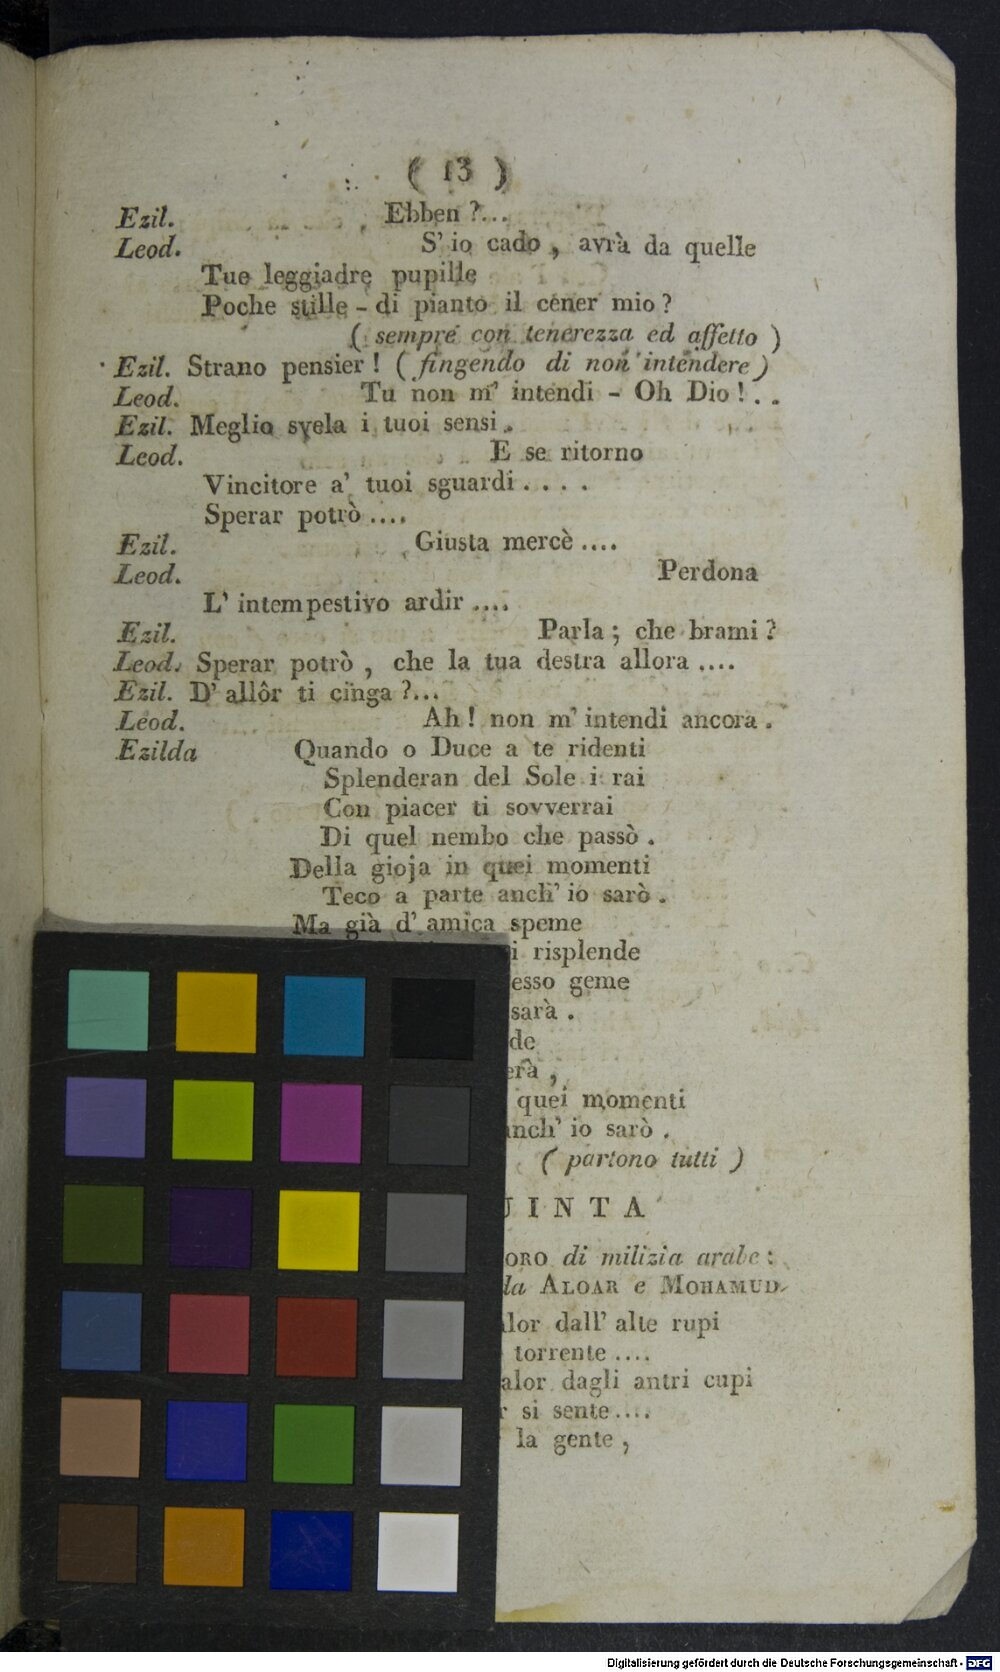 ( 13 )
Ezil. Ebben ?...
Leod. S' io cado , avrà da quelle
Tue leggiadre pupille
Poche stille - di pianto il cener mio ?
( sempre con tenerezza ed affetto )
Ezil. Strano pensier ! ( fingendo di non intendere )
Leod. Tu non m' intendi - Oh Dio ! . .
Ezil. Meglio svela i tuoi sensi .
Leod. E se ritorno
Vincitore a' tuoi sguardi . . . .
Sperar potrò ....
Ezil. Giusta mercè ....
Leod. Perdona
L' intempestivo ardir ....
Ezil. Parla ; che brami ?
Leod. Sperar potrò , che la tua destra allora ....
Ezil. D' allôr ti cinga ?...
Leod. Ah ! non m' intendi ancora .
Ezilda Quando o Duce a te ridenti
Splenderan del Sole i rai
Con piacer ti sovverrai
Di quel nembo che passò .
Della gioja in quei momenti
Teco a parte anch' io sarò .
Ma già d' amica speme
i risplende
esso geme
sarà .
de
erà ,
quei momenti
anch' io sarò .
( partono tutti )
UINTA
ORO di milizia arabe :
da ALOAR e MOHAMUD
alor dall' alte rupi
torrente ....
alor dagli antri cupi
r si sente ....
la gente ,
Digitalisierung gefördert durch die Deutsche Forschungsgemeinschaft - DFG